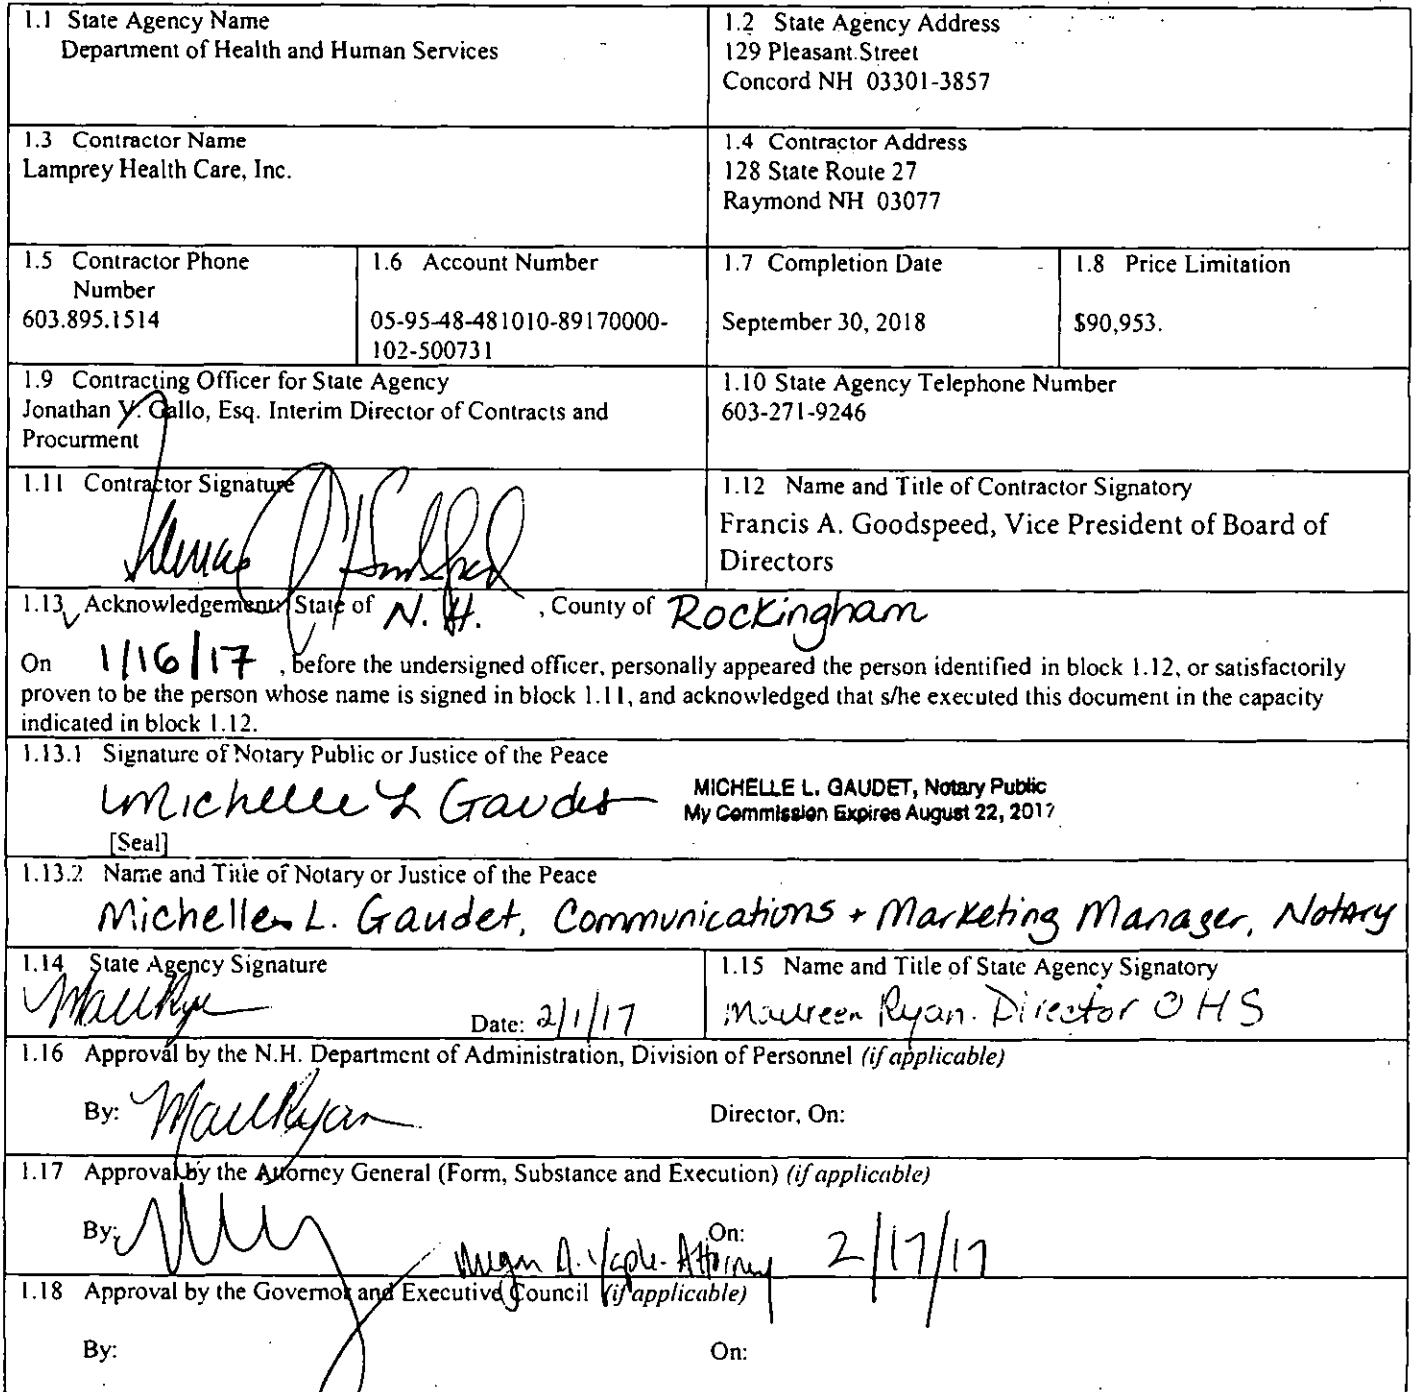 1.1 State Agency Name
Department of Health and Human Services
1.2 State Agency Address
129 Pleasant Street
Concord NH 03301-3857
1.3 Contractor Name
Lamprey Health Care, Inc.
1.4 Contractor Address
128 State Route 27
Raymond NH 03077
1.5 Contractor Phone
Number
603.895.1514
1.6 Account Number
05-95-48-481010-89170000-
102-500731
1.7 Completion Date
September 30, 2018
1.8 Price Limitation
$90,953.
1.9 Contracting Officer for State Agency
Jonathan V. Gallo, Esq. Interim Director of Contracts and
Procurment
1.10 State Agency Telephone Number
603-271-9246
1.11 Contractor Signature
1.12 Name and Title of Contractor Signatory
Francis A. Goodspeed, Vice President of Board of
Directors
1.13 Acknowledgement: State of N.H. , County of Rockingham
On 1/16/17 , before the undersigned officer, personally appeared the person identified in block 1.12, or satisfactorily
proven to be the person whose name is signed in block 1.11, and acknowledged that s/he executed this document in the capacity
indicated in block 1.12.
1.13.1 Signature of Notary Public or Justice of the Peace
Michelle L Gaudet
MICHELLE L. GAUDET, Notary Public
My Commission Expires August 22, 2017
[Seal]
1.13.2 Name and Title of Notary or Justice of the Peace
Michelle L. Gaudet, Communications + Marketing Manager, Notary
1.14 State Agency Signature
Date: 2/1/17
1.15 Name and Title of State Agency Signatory
Maureen Ryan. Director OHS
1.16 Approval by the N.H. Department of Administration, Division of Personnel (if applicable)
By: Director, On:
1.17 Approval by the Attorney General (Form, Substance and Execution) (if applicable)
By: Megan A. Yaple-Attorney On: 2/17/17
1.18 Approval by the Governor and Executive Council (if applicable)
By: On: